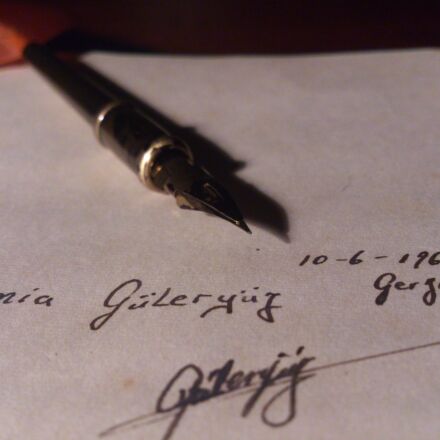 10-6-196
nia Güleryüz Gerg
Güleryüz